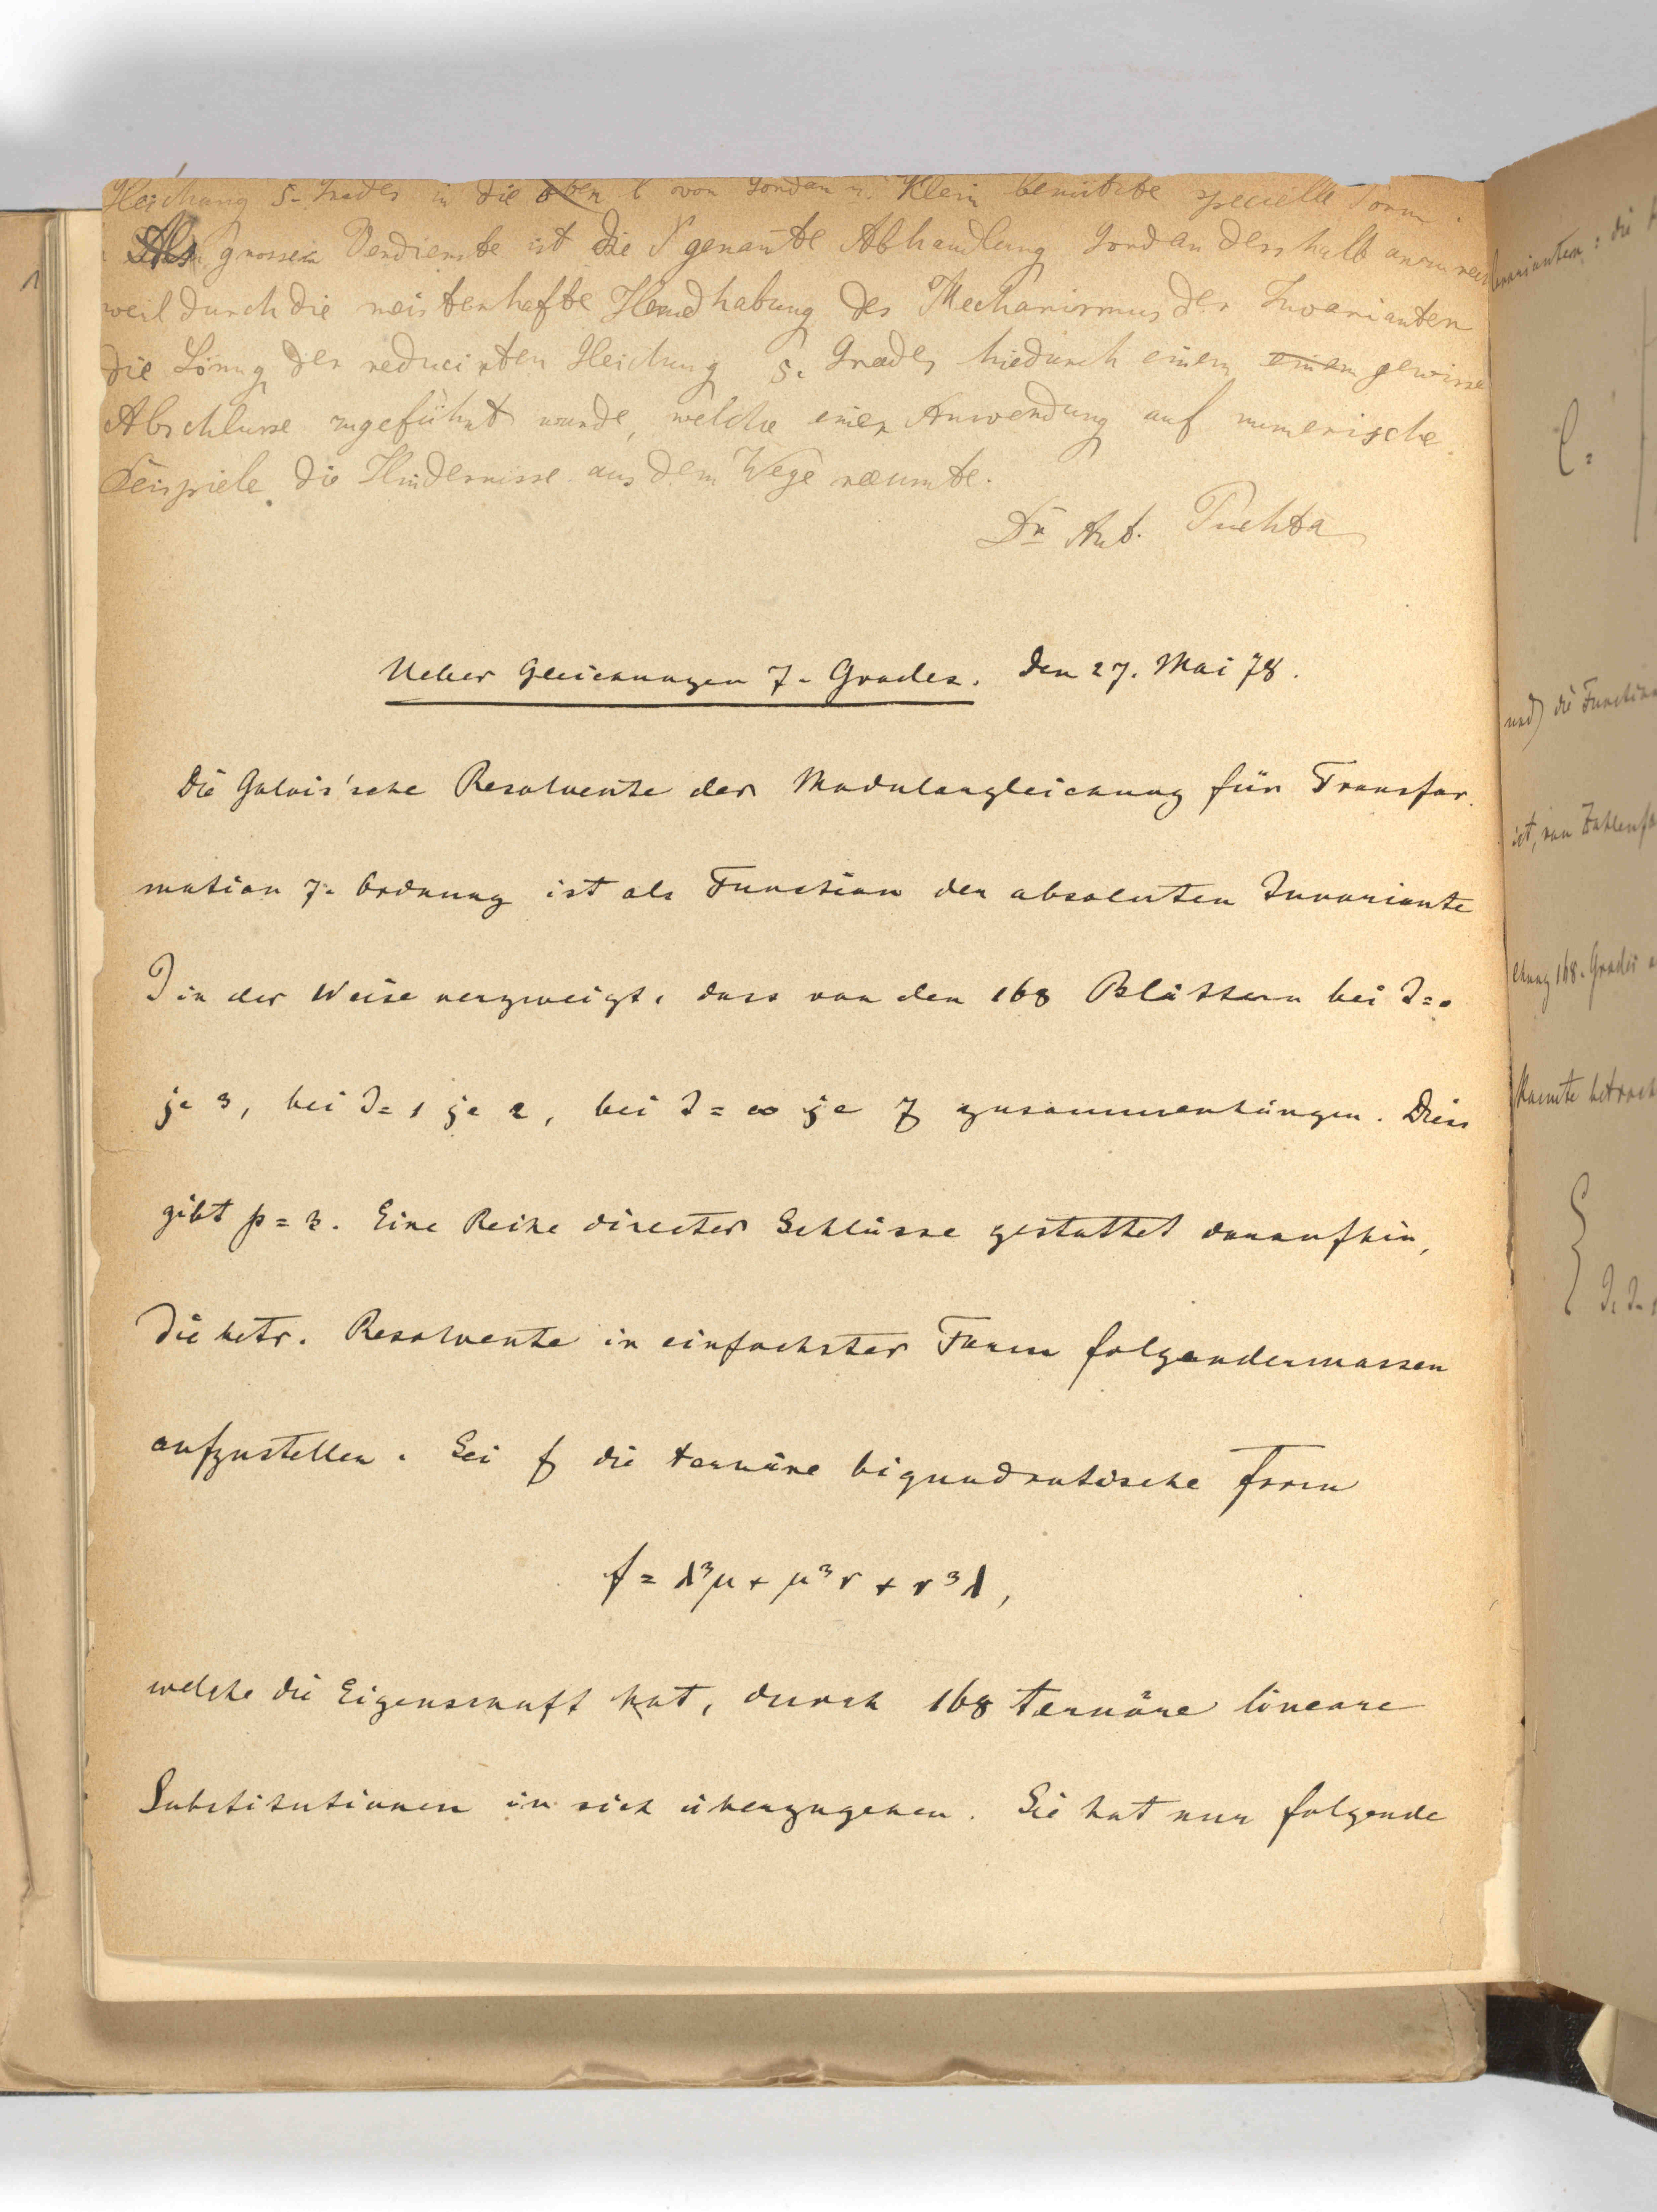 Gleichung 5. Grades in die oben b von Gordan u. Klein benützte specielle Form.
Als grossen Verdienste ist die genannte Abhandlung Gordan desshalb
weil durch die meisterhafte Handhabung des Mechanismus der Invarianten
die Lösung der reducirten Gleichung 5. Grades hiedurch einem einem gewisse
Abschlusse zugeführt wurde, welche einer Anwendung auf numerische
Beispiele die Hindernisse aus dem Wege räumte.
Dr Ant. Puchta
Ueber Gleichungen 7. Grades. Den 27. Mai 78.
Die Galois'sche Resolvente der Modulargleichung für Transfor-
mation 7. Ordnung ist als Function der absoluten Invariante
J in der Weise verzweigt, dass von den 168 Blättern bei J=0
je 3, bei J=1 je 2, bei J=∞ je 7 zusammenhängen. Dies
gibt p=3. Eine Reihe directer Schlüsse gestattet daraufhin,
die betr. Resolvente in einfachster Form folgendermassen
aufzustellen. Sei f die ternäre biquadratische Form
f = λ³μ + μ³ν + ν³λ,
welche die Eigenschaft hat, durch 168 ternäre lineare
Substitutionen in sich überzugehen. Sie hat nur folgende
1
die
C =
und) die Function
ist, von
168. Grades
{